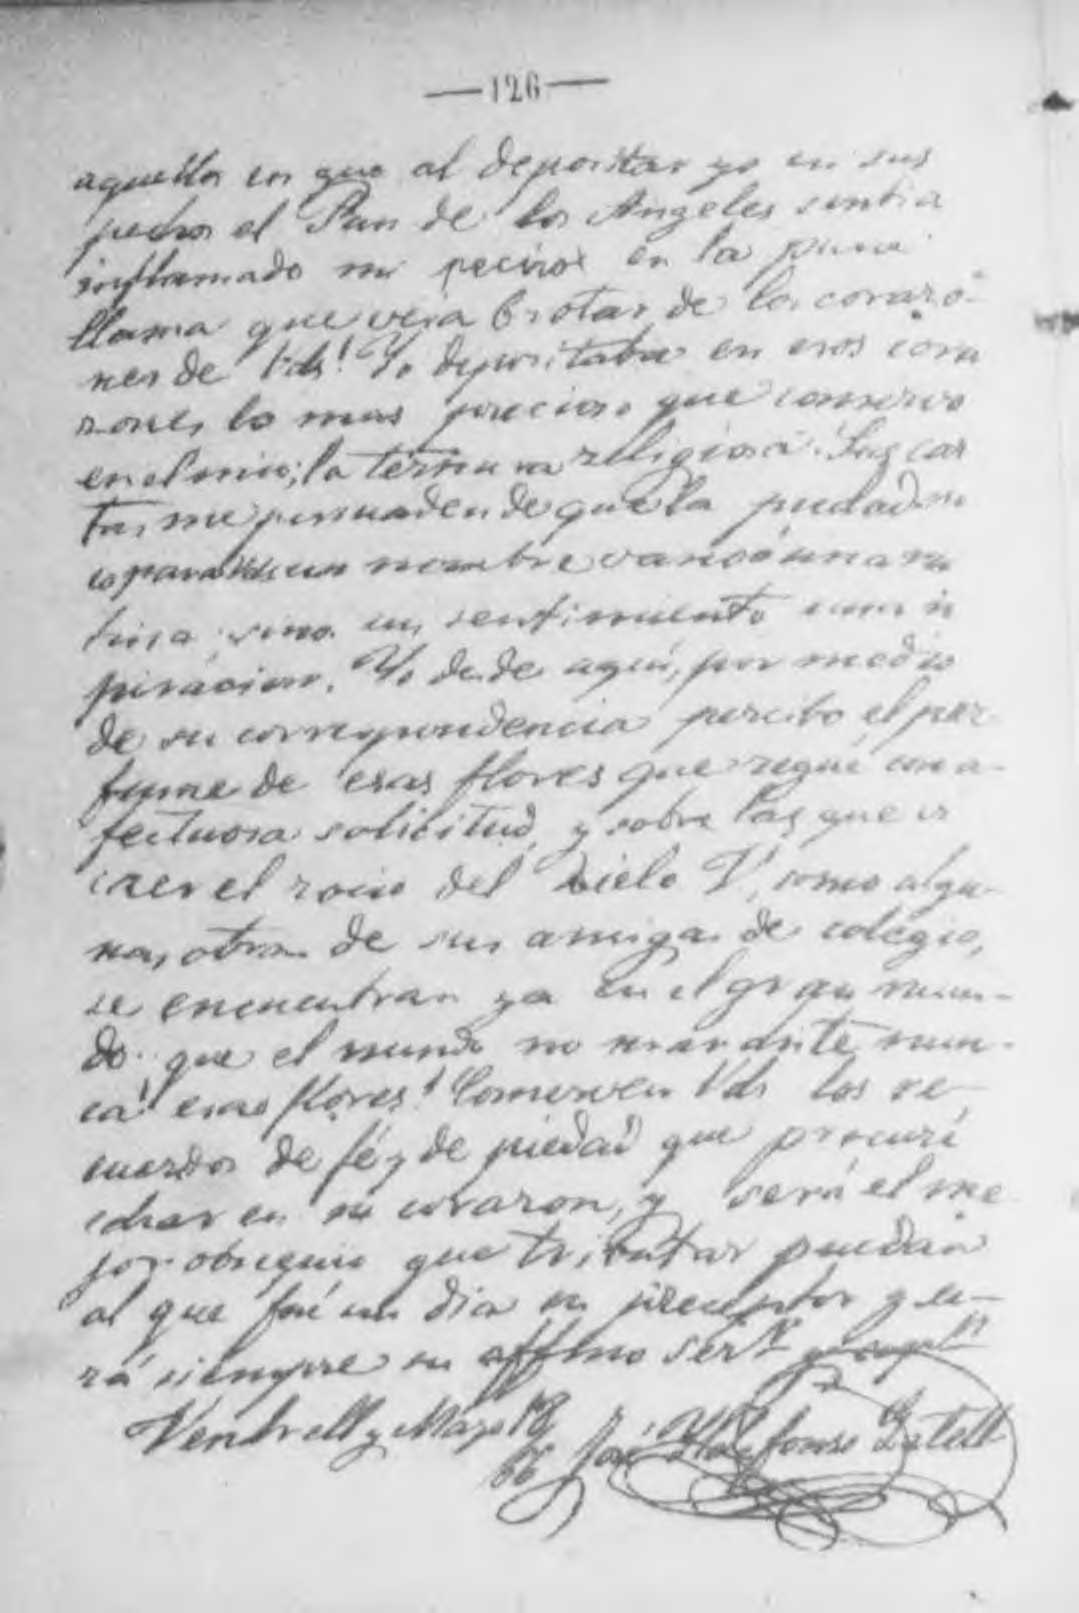 —126—
aquellos en que al depositar yo en sus
pechos el Pan de los Angeles sentia
inflamado mi pecho en la pura
llama que veia brotar de los corazo-
nes de Vds! Yo depositaba en esos cora
zones lo mas precioso que conservo
en el mio; la ternura religiosa. Sus car
tas me persuaden de que la piedad no
es para Vds un nombre vano ó una ru
tina, sino un sentimiento una ins
piracion. Yo desde aquí, por medio
de su correspondencia percibo el per-
fume de esas flores que regué con a-
fectuosa solicitud, y sobre las que ví
caer el rocio del Cielo V, como algu-
nas otras de sus amigas de colegio,
se encuentran ya en el gran mun-
do: que el mundo no marchite nun-
ca! esas flores! Conserven Vds los re-
cuerdos de fé y de piedad que procuré
echar en su corazon, y será el me
jor obsequio que tributar puedan
al que fué un dia su preceptor y se-
rá siempre su affmo ser.r y capn
Vendrell y Mayo 18
66 José Yldefonso Gatell